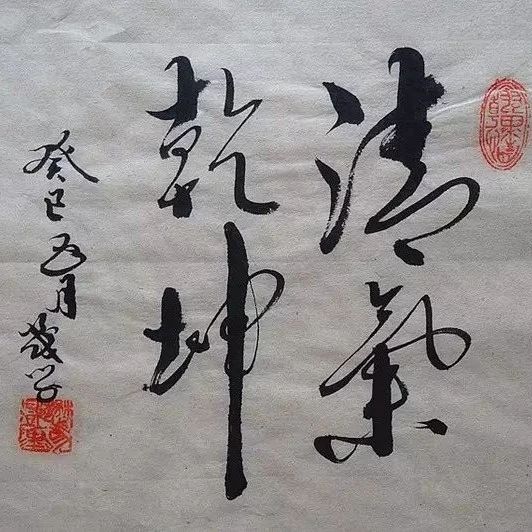 清氣
乾坤
癸巳五月